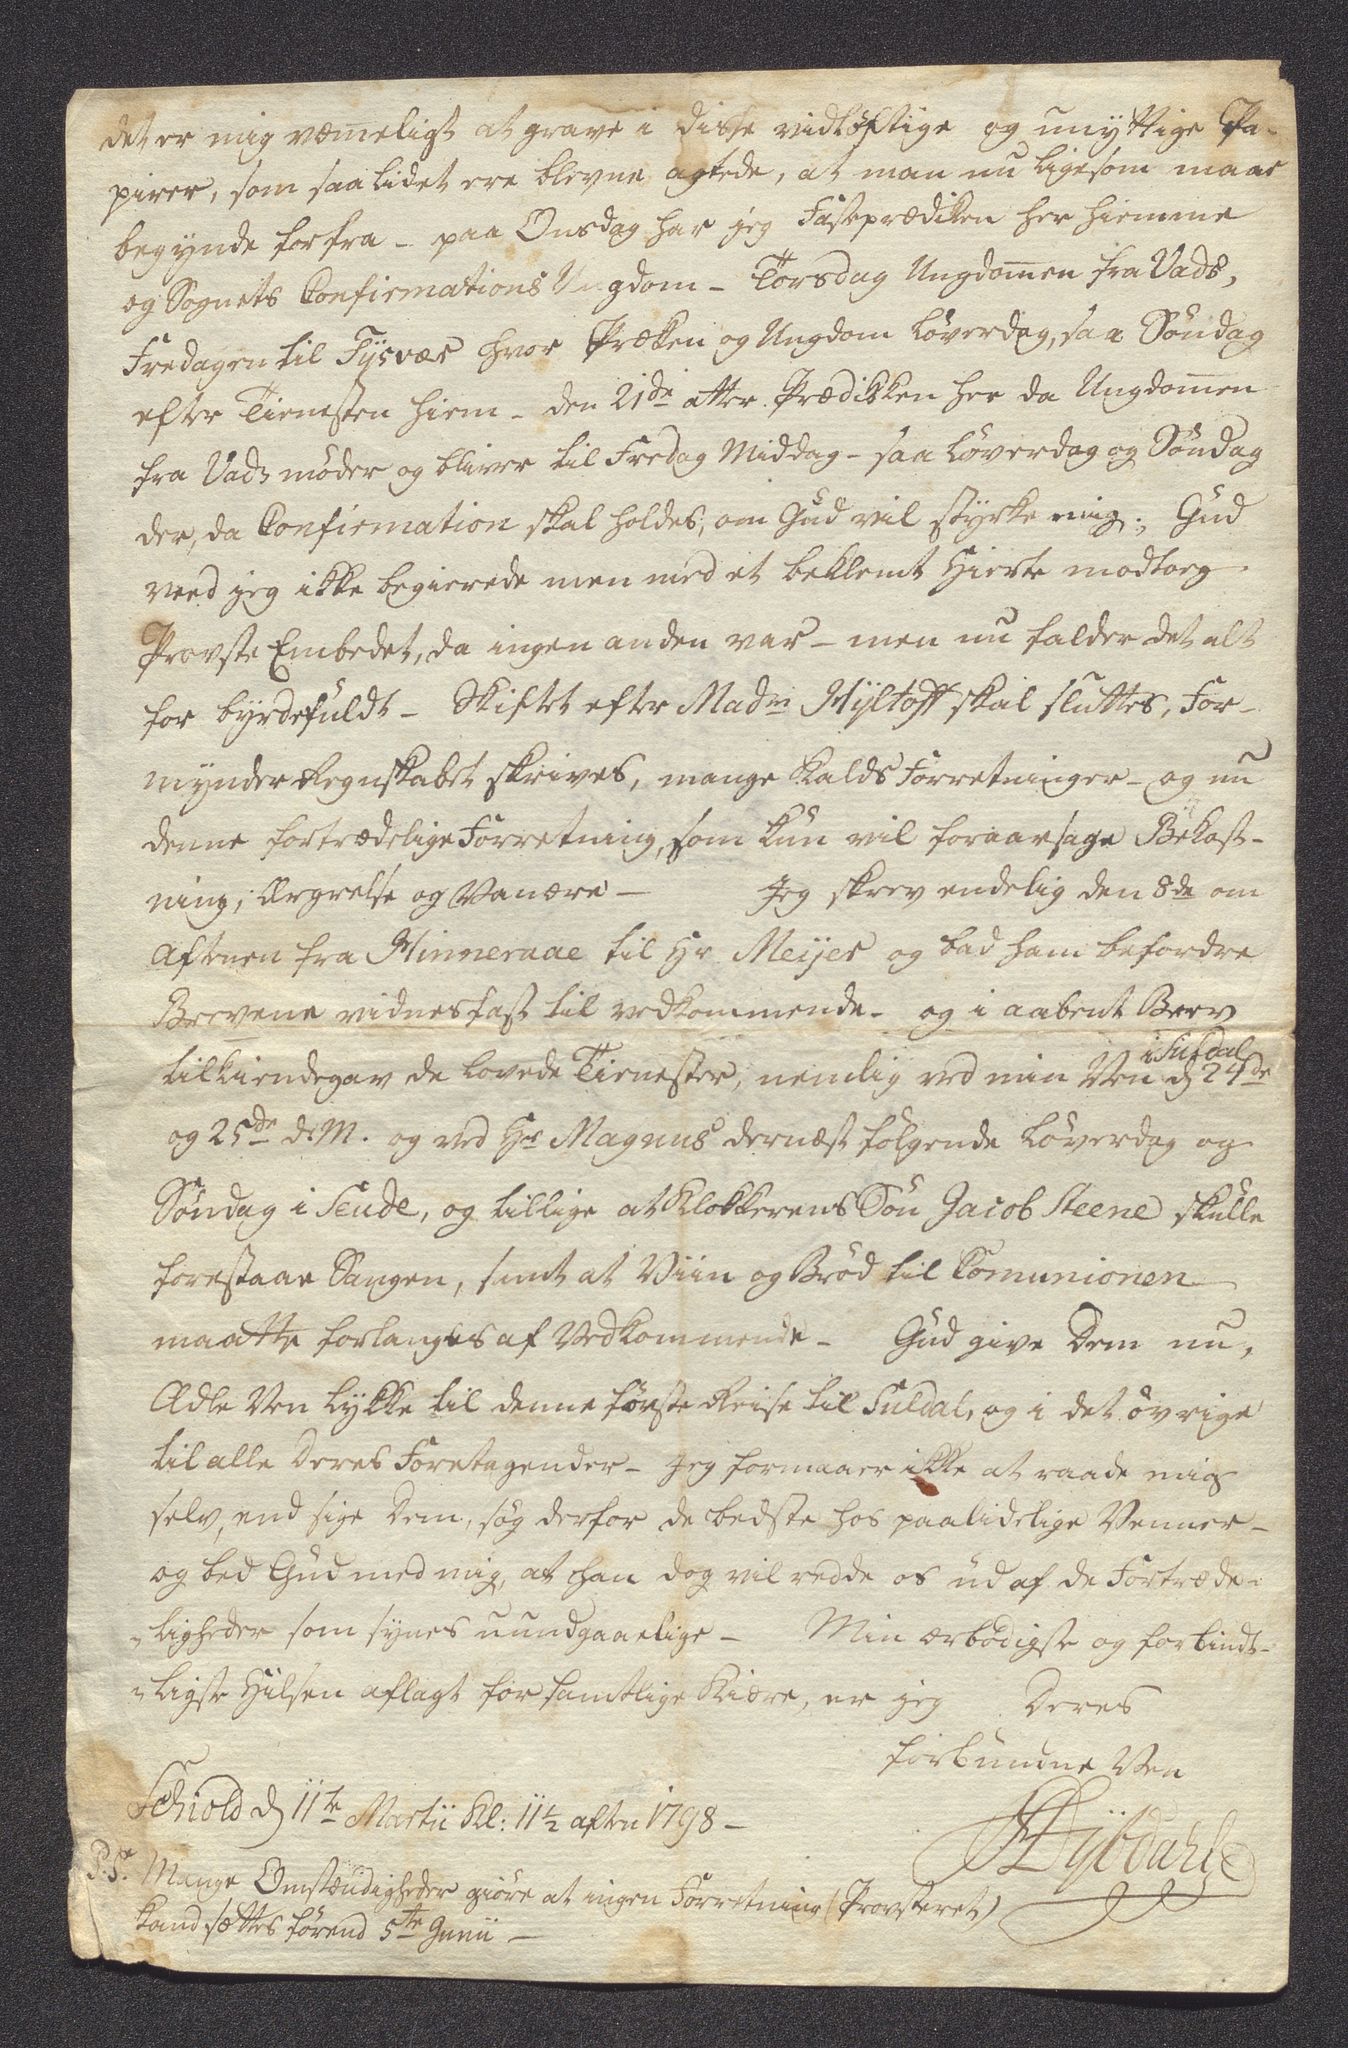 det er mig væmeligt at grave i disse vidløftige og unyttige Pa-
pirer, som saa lidet ere blevne agtede, at man nu ligesom maae
begynde forfra - paa Onsdag har jeg Fasteprædiken her hiemme
og Sognets Confirmations Ungdom - Torsdag Ungdom̅en fra Vads,
Fredagen til Tysvær hvor Præken og Ungdom Løverdag, saa Søndag
efter Tienesten hiem - den 21de atter Prædikken her da Ungdom̅en
fra Vads møder og bliver til Fredag Middag - saa Løverdag og Søndag
der, da Confirmation skal holdes, om Gud vil styrke mig; Gud
veed jeg ikke begierede men med et beklemt Hierte modtog
Provste Embedet, da ingen anden var - men nu falder det alt
for byrdefuldt - Skiftet efter Madm Hyltoff skal sluttes, For-
mynder Regnskabet skrives, mange Kalds Forretninger - og nu
denne fortrædelige Forretning, som kun vil foraarsage Bekost-
ning, Ærgrelse og Vanære - Jeg skrev endelig den 8de om
Aftenen fra Hinneraae til Hr Meijer og bad ham befordre
Brevene vidnesfast til vedkommende - og i aabent Brev
tilkiendegav de lovede Tienester, nemlig ved min Ven i Suldal d 24de
og 25de d. M. og ved Hr Magnus dernæst følgende Løverdag og
Søndag i Seude, og tillige at Klokkerens Søn Jacob Steene skulle
forestaae Sangen, samt at Viin og Brød til Comunionen
maatte forlanges af Vedkommende - Gud give Dem nu,
Ædle Ven Lykke til denne første Reise til Suldal, og i det øvrige
til alle Deres Foretagender - jeg formaaer ikke at raade mig
selv, end sige Dem, søg derfor de bedste hos paalidelige Venner -
og bed Gud med mig, at han dog vil redde os ud af de Fortræde-
ligheder som synes uundgaaelige - Min ærbødigste og forbindt-
ligste Hilsen aflagt for samtlige Kiære, er jeg Deres
forbundne Ven
Schiold d 11te Martii Kl: 11½ aften 1798 -
Dybdahl
P.S. Mange Omstændigheder giøre at ingen Forretning (Provsteret)
kand sættes førend 5te Junii -